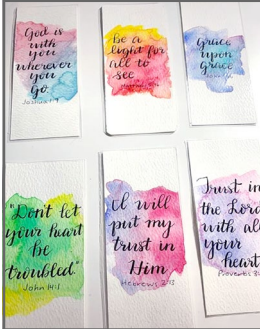 God is
with
you
wherever
you
Go.
Joshua 1:9
Be a
light for
all to
see
Grace
upon
Grace
"Don't let
your heart
be
troubled"
John 14:1
I will
put my
trust in
Him
Hebrews 2:13
Trust in
the Lord
with all
your
heart
Proverbs